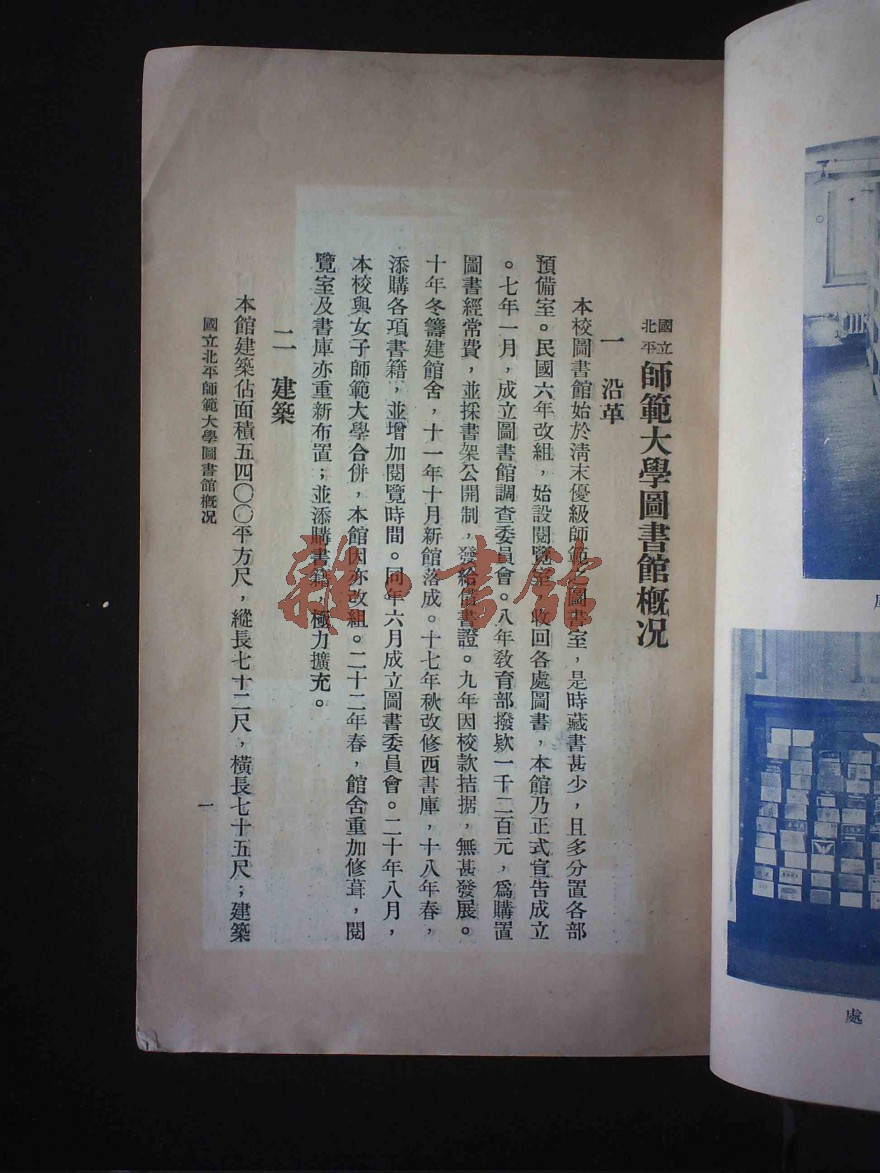 國立北平師範大學圖書館概况
一　沿革
本校圖書館始於淸末優級師範之圖書室，是時藏書甚少，且多分置各部
預備室。民國六年改組，始設閱覽室，收回各處圖書，本館乃正式宣告成立
。七年一月，成立圖書館調查委員會。八年敎育部撥欵一千二百元，爲購置
圖書經常費，並採書架公開制，發給借書證。九年因校款拮据，無甚發展。
十年冬籌建館舍，十一年十月新館落成。十七年秋改修西書庫，十八年春，
添購各項書籍，並增加閱覽時間。同年六月成立圖書委員會。二十年八月，
本校與女子師範大學合併，本館因亦改組。二十二年春，館舍重加修葺，閱
覽室及書庫亦重新布置；並添購書籍，極力擴充。
二　建築
本館建築佔面積五四〇〇平方尺，縱長七十二尺，橫長七十五尺；建築
國立北平師範大學圖書館概况
一
雜·書館
處